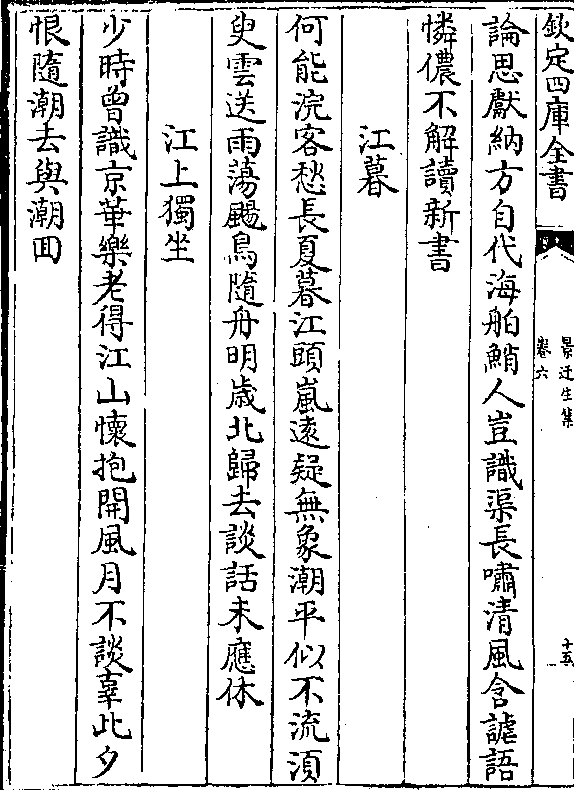 欽定四庫全書
景迂生集
卷六
十五
論思獻納方自代海舶鮹人豈識渠長嘯清風含謔語
憐儂不解讀新書
江暮
何能浣客愁長夏暮江頭嵐遠疑無象潮平似不流須
臾雲送雨蕩颺鳥隨舟明歲北歸去談話未應休
江上獨坐
少時曾識京華樂老得江山懷抱開風月不談辜此夕
恨隨潮去與潮回